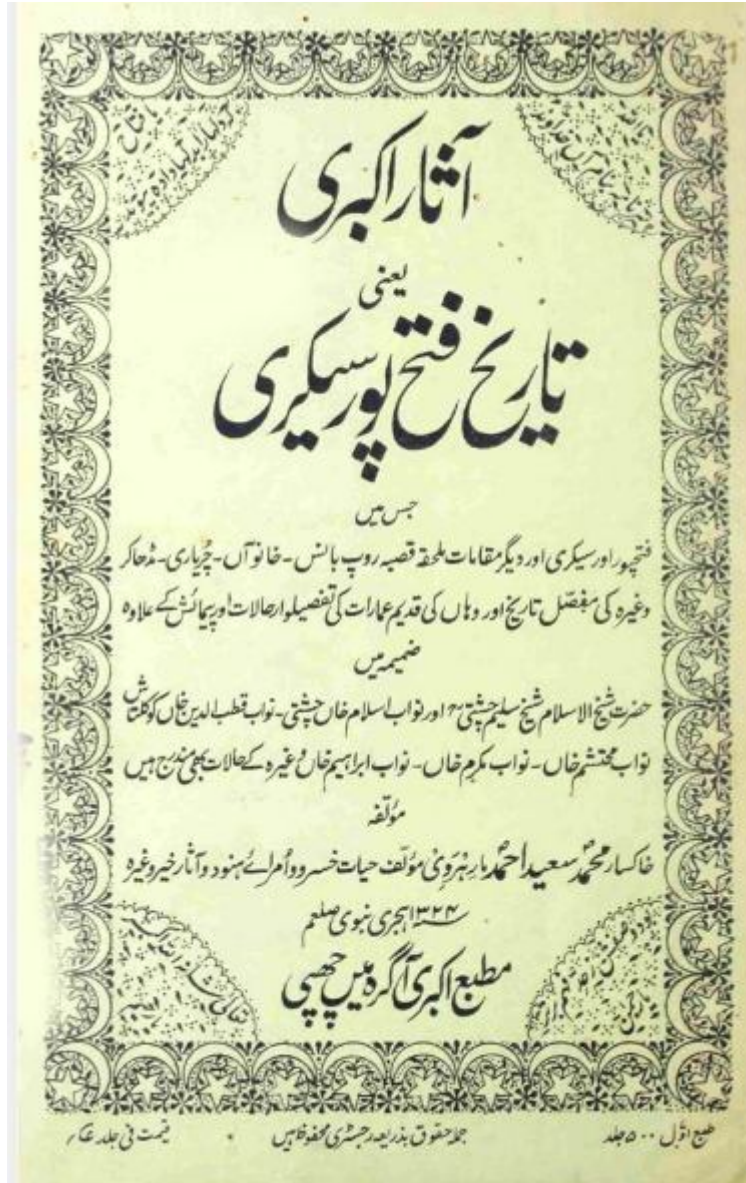 آثار اکبری
یعنی
تاریخ فتح پور سیکری
جس میں
فتحپور اور سیکری اور دیگر مقامات ملحقہ قصبہ روپ بانس - خانوآں - چُریاری - مڈھاکر
وغیرہ کی مفصّل تاریخ اور وہاں کی قدیم عمارات کی تفصیلوار حالات اور پیمائش کے علاوہ
ضمیمہ میں
حضرت شیخ الاسلام شیخ سلیم چشتیؒ اور نواب اسلام خاں چشتی - نواب قطب الدین خاں کوکلتاش
نواب محتشم خاں - نواب مکرم خاں - نواب ابراہیم خاں وغیرہ کے حالات بھی مندرج ہیں
مؤلّفہ
خاکسار محمّد سعید احمد مارہروی مؤلف حیات خسرو و اُمرائے ہنود و آثار خیر وغیرہ
۱۳۲۴ ہجری نبوی صلعم
مطبع اکبری آگرہ میں چھپی
طبع اوّل ۵۰۰ جلد
جملہ حقوق بذریعہ رجسٹری محفوظ ہیں
قیمت فی جلد